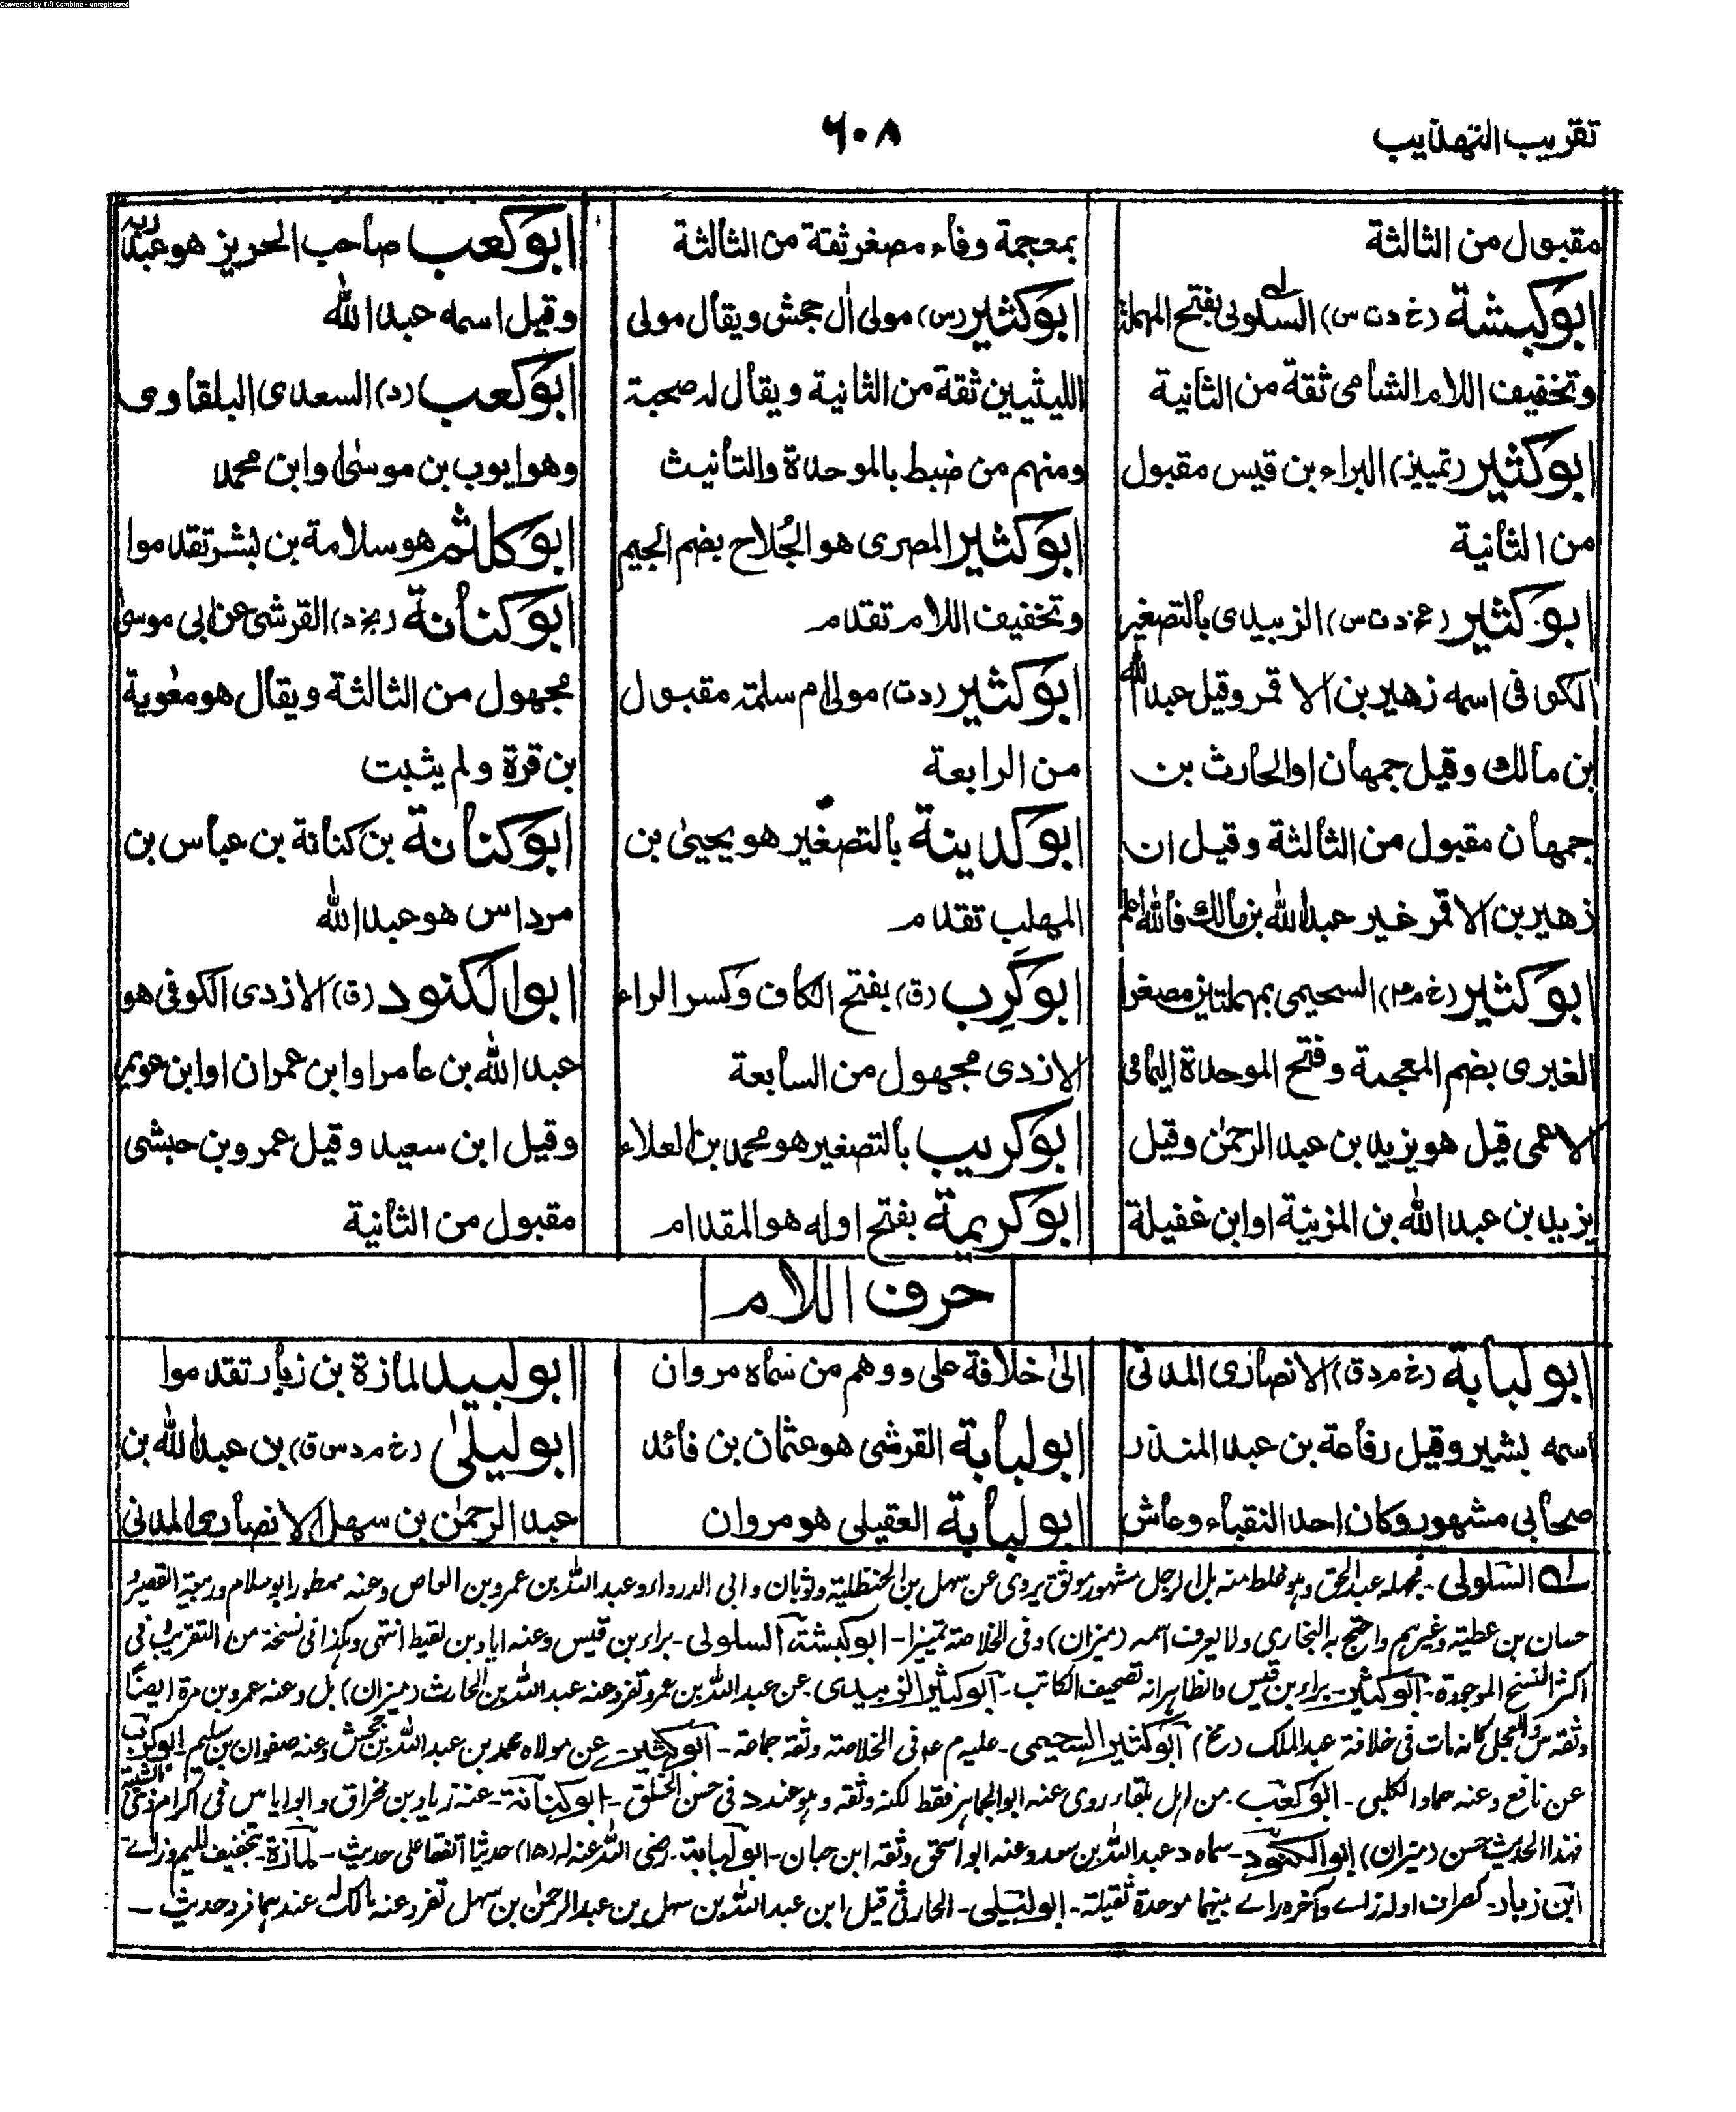 Converted by Tiff Combine - unregistered
تقريب التهذيب
٦٠٨
مقبول من الثالثة
ابو كبشة (خ د ت س) السلولى بفتح المهملة
وتخفيف اللام الشامى ثقة من الثانية
ابو كثير (تمييز) البراء بن قيس مقبول
من الثانية
ابو كثير (عخ د ت س) الزبيدى بالتصغير
الكوفى اسمه زهير بن الاقمر وقيل عبد الله
بن مالك وقيل جمهان او الحارث بن
جمهان مقبول من الثالثة وقيل ان
زهير بن الاقمر غير عبد الله بن مالك فالله اعلم
ابو كثير (بخ م عه) السحيمى بمهملتين مصغرا
الغبرى بضم المعجمة وفتح الموحدة اليمامى
الاعمى قيل هو يزيد بن عبد الرحمٰن وقيل
يزيد بن عبد الله بن المزينة او ابن غفيلة
بمعجمة وفاء مصغر ثقة من الثالثة
ابو كثير (س) مولى اٰل جحش ويقال مولى
الليثيين ثقة من الثانية ويقال له صحبة
ومنهم من ضبط بالموحدة والتأنيث
ابو كثير المصرى هو الجُلاح بضم الجيم
وتخفيف اللام تقدم
ابو كثير (د ت) مولى ام سلمة مقبول
من الرابعة
ابو كدينة بالتصغير هو يحيىٰ بن
المهلب تقدم
ابو كَرِب (ق) بفتح الكاف وكسر الراء
الازدى مجهول من السابعة
ابو كريب بالتصغير هو محمد بن العلاء
ابو كريمة بفتح اوله هو المقدام
ابو كعب صاحب الحرير هو عبد ربه
وقيل اسمه عبد الله
ابو كعب (د) السعدى البلقاوى
وهو ايوب بن موسىٰ او ابن محمد
ابو كلثم هو سلامة بن بشر تقدموا
ابو كنانة (بخ د) القرشى عن ابى موسىٰ
مجهول من الثالثة ويقال هو معٰوية
بن قرة ولم يثبت
ابو كنانة بن كنانة بن عباس بن
مرداس هو عبد الله
ابو الكنود (ق) الازدى الكوفى هو
عبد الله بن عامر او ابن عمران او ابن عويمر
وقيل ابن سعيد وقيل عمرو بن حبشى
مقبول من الثانية
حرف اللام
ابو لبابة (خ م د ق) الانصارى المدنى
اسمه بشير وقيل رفاعة بن عبد المنذر
صحابى مشهور وكان احد النقباء وعاش
الىٰ خلافة على ووهم من سماه مروان
ابو لبابة القرشى هو عثمان بن فائد
ابو لبابة العقيلى هو مروان
ابو لبيد لمازة بن زبار تقدموا
ابو ليلىٰ (خ م د س ق) بن عبد الله بن
عبد الرحمٰن بن سهل الانصارى المدنى
لـه السلولى - جهله عبد الحق وهو غلط منه بل الرجل مشهور موثق يروى عن سهل بن الحنظلية وثوبان وابى الدرداء وعبد الله بن عمرو بن العاص وعنه ممطور ابو سلام وربيعة القصير و
حسان بن عطية وغيرهم واحتج به البخارى ولا يعرف اسمه (ميزان) وفى الخلاصة تمييزا - ابو كبشة السلولى - براء بن قيس وعنه اياد بن لقيط انتهى وهكذا فى نسخة من التقريب و فى
اكثر النسخ الموجودة - ابو كثير - براء بن قيس والظاهر انه تصحيف الكاتب - ابو كثير الزبيدى عن عبد الله بن عمرو تفرد عنه عبد الله بن الحارث (ميزان) بل وعنه عمرو بن مرة ايضًا
وثقه س والعجلى كانه مات فى خلافة عبد الملك (مخ) ابو كثير السحيمى - عليه م عه فى الخلاصة وثقه جماعة - ابو كثير - عن مولاه محمد بن عبد الله بن جحش وعنه صفوان بن سليم ابو كرب
عن نافع وعنه حماد الكلبى - ابو كعب - من اهل بلقاء روى عنه ابو الجماهر فقط لكنه وثقه وهو عند د فى حسن الخلق - ابو كنانة - عنه زياد بن مخراق وابو اياس فى اكرام ذى الشيبة
فهذا الحديث حسن (ميزان) ابو الكنود - سماه د عبد الله بن سعد وعنه ابو اسحٰق وثقه ابن حبان - ابو لبابة - رضى الله عنه له (١٥) حديثا اتفقا على حديث - لمازة - بتخفيف الميم وزاے
ابن زباد - كصراف اوله زاے وآخره راے بينهما موحدة ثقيلة - ابو ليلى - الحارثى قيل ابن عبد الله بن سهل بن عبد الرحمٰن بن سهل تفرد عنه مالك له عندهما فرد حديث -